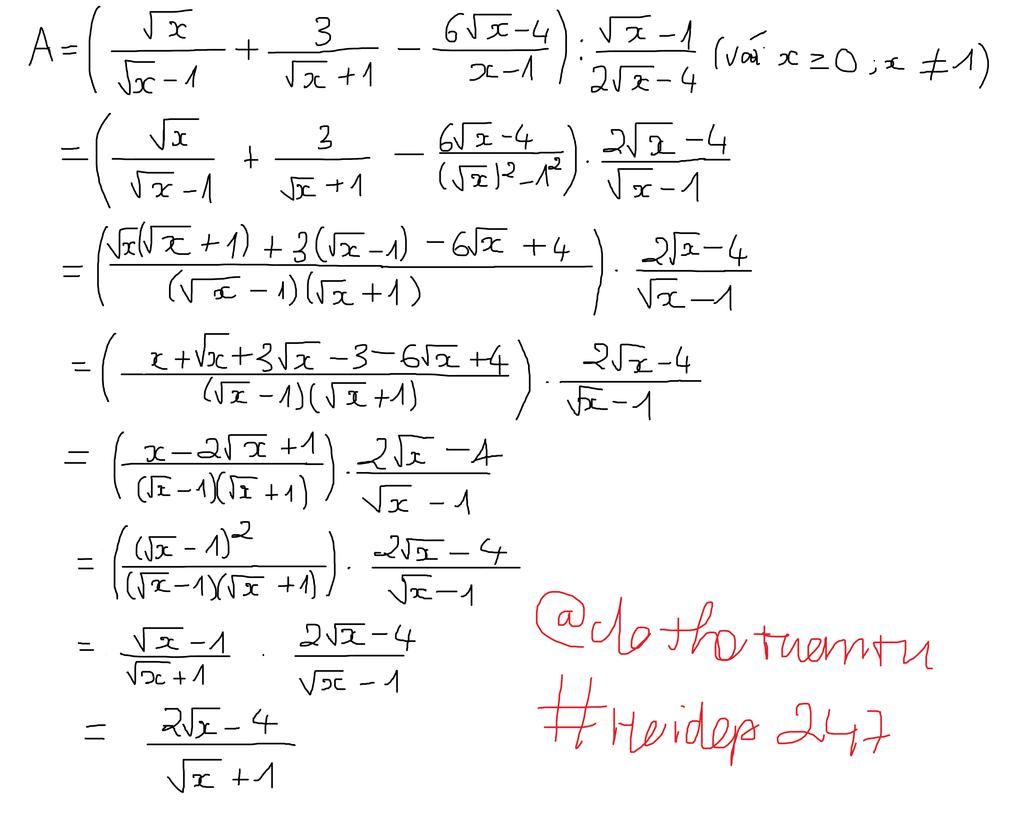 A = (√x/(√x-1) + 3/(√x+1) - (6√x-4)/(x-1)) : (√x-1)/(2√x-4) (với x ≥ 0 ; x ≠ 1)
= (√x/(√x-1) + 3/(√x+1) - (6√x-4)/((√x)²-1²)) . (2√x-4)/(√x-1)
= ((√x(√x+1) + 3(√x-1) - 6√x + 4)/((√x-1)(√x+1))) . (2√x-4)/(√x-1)
= ((x+√x+3√x-3-6√x+4)/((√x-1)(√x+1))) . (2√x-4)/(√x-1)
= ((x-2√x+1)/((√x-1)(√x+1))) . (2√x-4)/(√x-1)
= ((√x-1)²/((√x-1)(√x+1))) . (2√x-4)/(√x-1)
= (√x-1)/(√x+1) . (2√x-4)/(√x-1)
= (2√x-4)/(√x+1)
#Heidep247